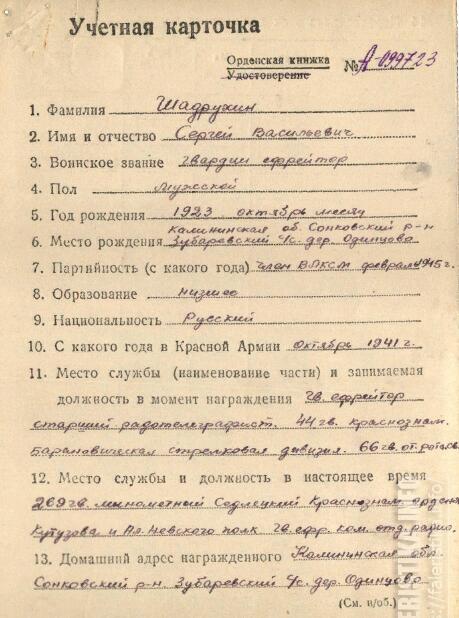 Учетная карточка
Орденская книжка
Удостоверение
№ А-099723
1. Фамилия Шадрухин
2. Имя и отчество Сергей Васильевич
3. Воинское звание гвардии ефрейтор
4. Пол мужской
5. Год рождения 1923 октябрь месяц
Калининская об. Сонковский р-н
6. Место рождения Зубаревский с/с дер. Одинцово
7. Партийность (с какого года) член ВЛКСМ февраль 1945 г.
8. Образование низшее
9. Национальность Русский
10. С какого года в Красной Армии октябрь 1941 г.
11. Место службы (наименование части) и занимаемая
должность в момент награждения Гв. ефрейтор
старший радотелеграфист. 44 гв. краснознам.
Барановическая стрелковая дивизия. 66 гв. от. рота св.
12. Место службы и должность в настоящее время
269 гв. минометный Седлецкий Краснознам. ордена
Кутузова и Ал. Невского полк Гв. ефр. ком. отд. радио.
13. Домашний адрес награжденного Калининская обл
Сонковский р-н. Зубаревский с/с. дер. Одинцово
(См. н/об.)